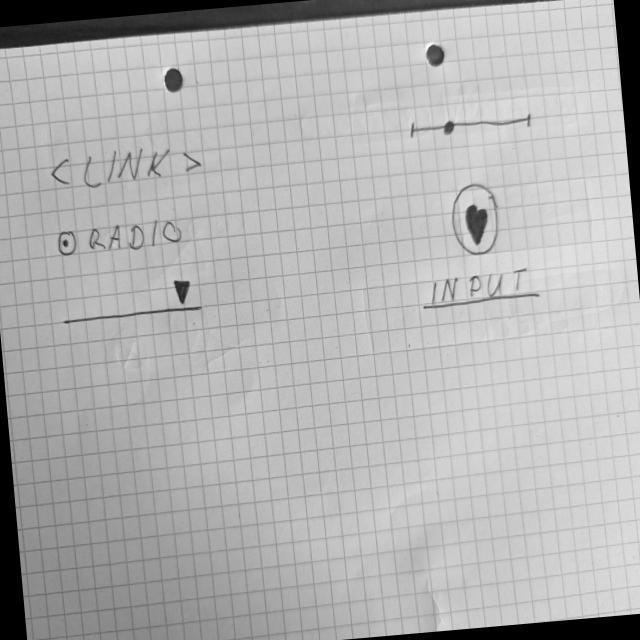 <LINK>
RADIO
INPUT